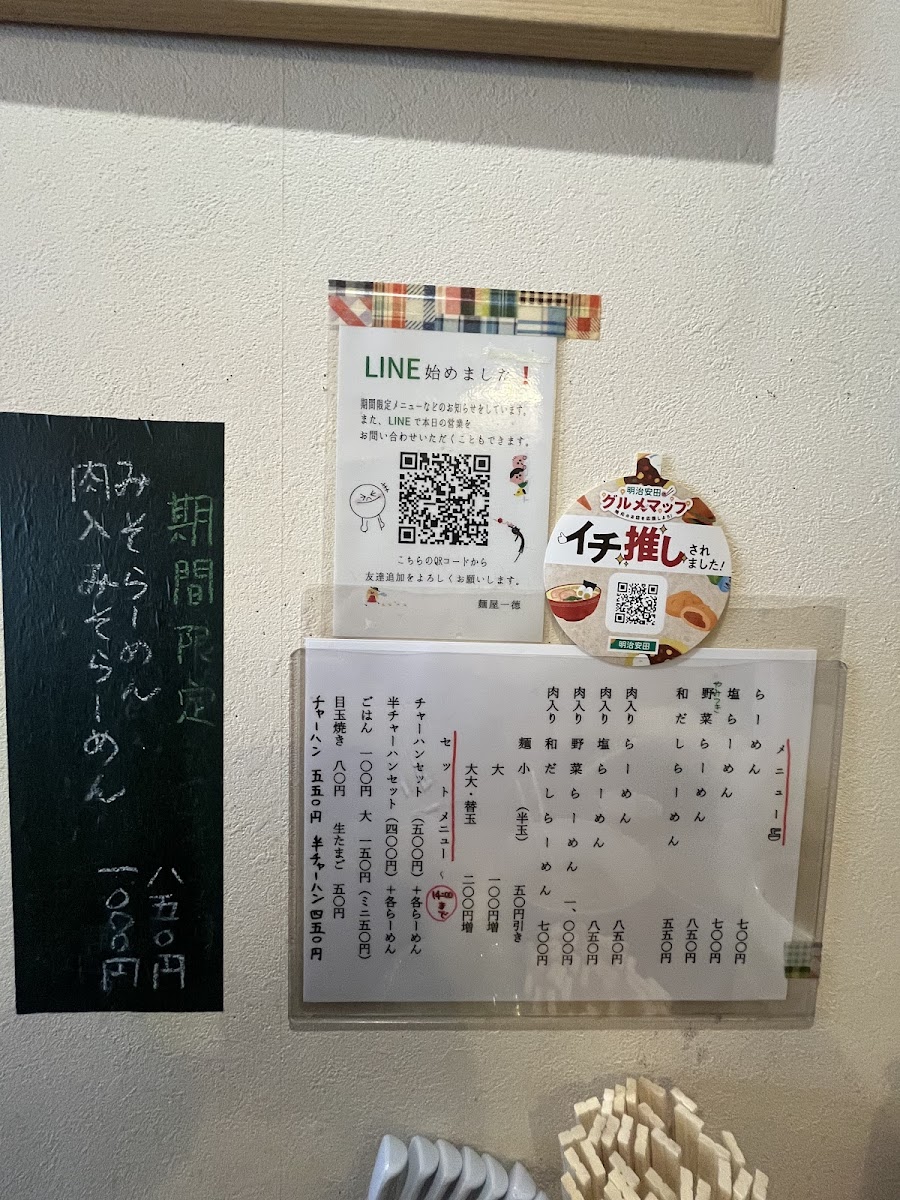 期間限定
みそらーめん 八五〇円
肉入みそらーめん 一〇〇〇円
LINE始めました!
期間限定メニューなどのお知らせをしています。
また、LINEで本日の営業を
お問い合わせいただくこともできます。
こちらのQRコードから
友達追加をよろしくお願いします。
麺屋一徳
明治安田の
グルメマップ
イチ推しされました!
明治安田
メニュー
らーめん 七〇〇円
塩らーめん 七〇〇円
野菜らーめん 八五〇円
和だしらーめん 五五〇円
肉入り らーめん 八五〇円
肉入り 塩らーめん 八五〇円
肉入り 野菜らーめん 一、〇〇〇円
肉入り 和だしらーめん 七〇〇円
麺 小 (半玉) 五〇円引き
大 一〇〇円増
大大・替玉 二〇〇円増
セットメニュー~
チャーハンセット(五〇〇円)+各らーめん
半チャーハンセット(四〇〇円)+各らーめん
ごはん 一〇〇円 大 一五〇円(ミニ五〇円)
目玉焼き 八〇円 生たまご 五〇円
チャーハン 五五〇円 半チャーハン 四五〇円